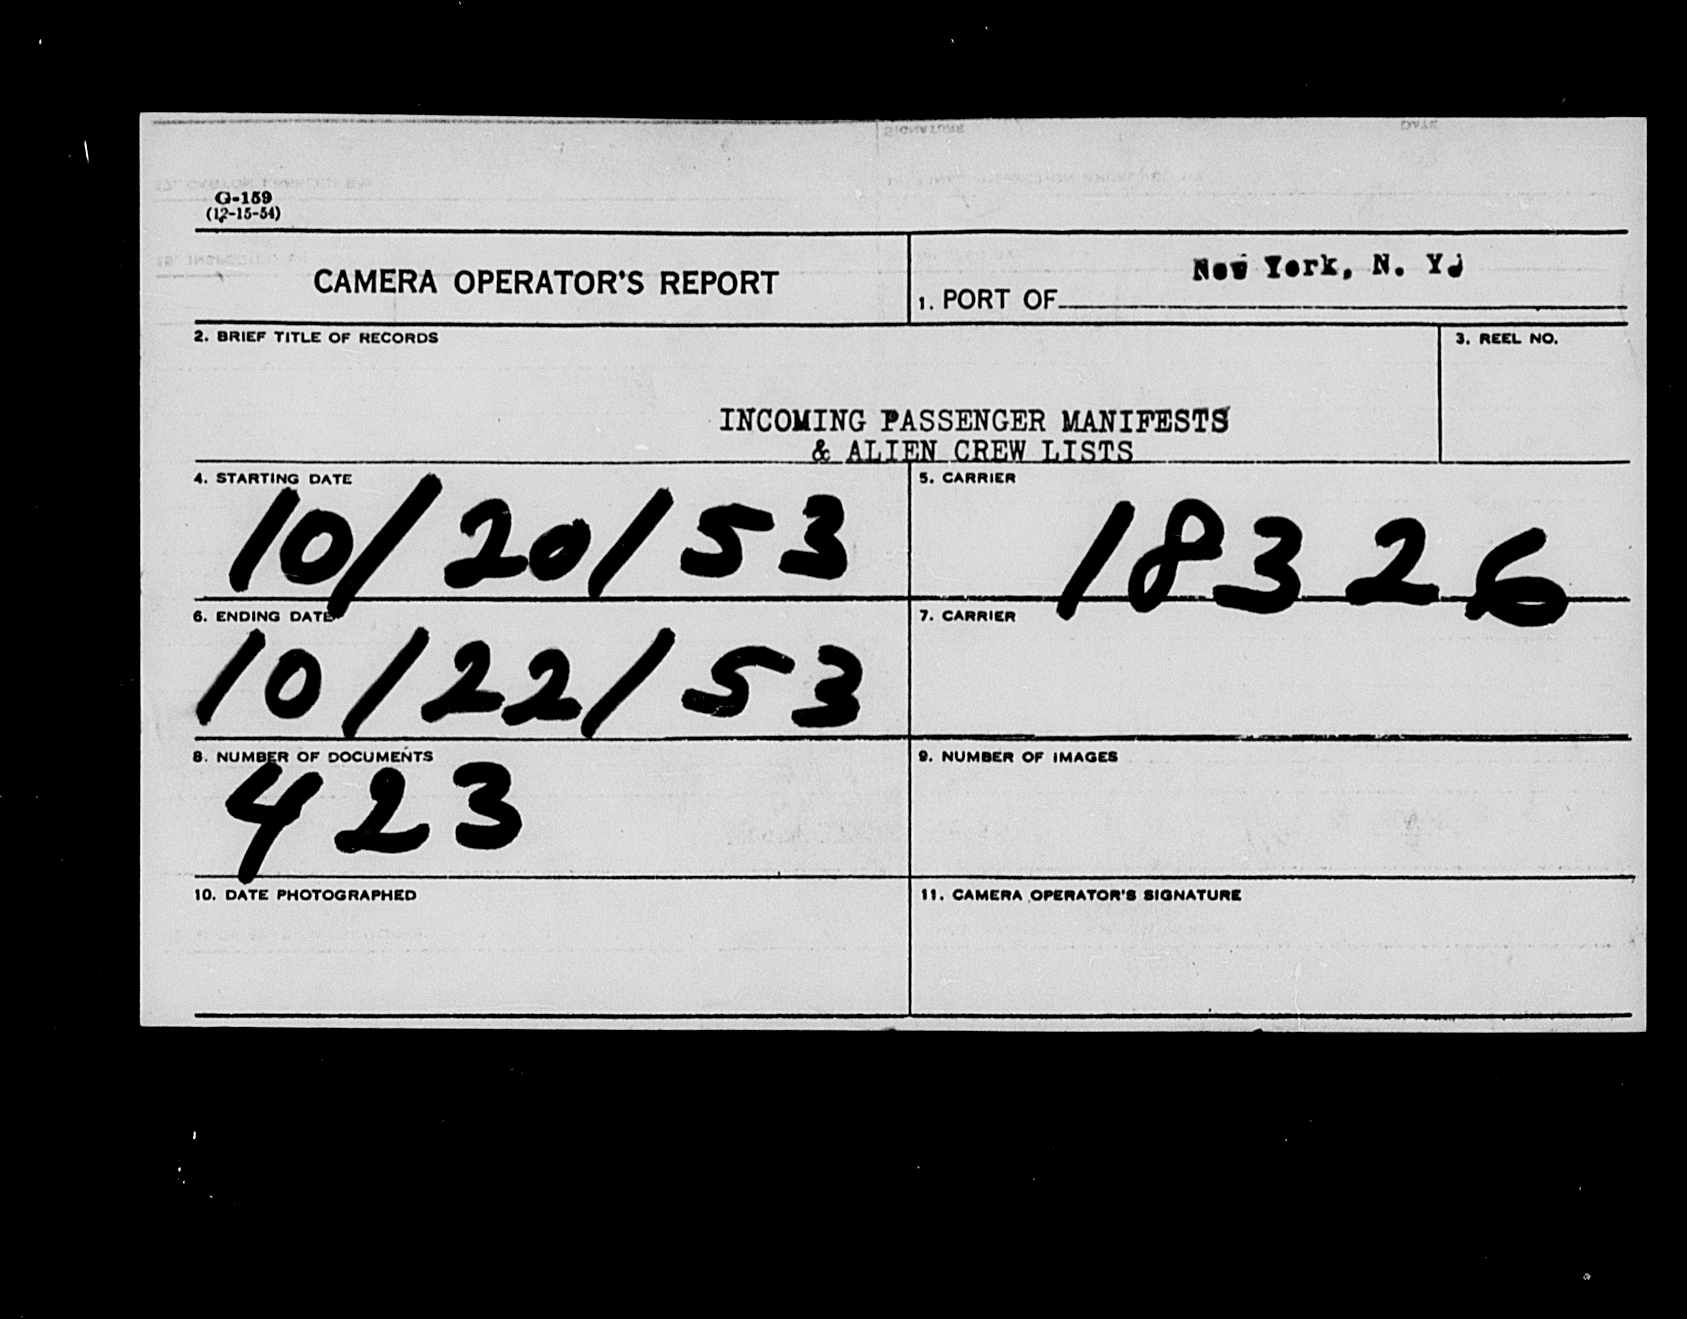 G-159
(12-15-54)
CAMERA OPERATOR'S REPORT
1. PORT OF New York, N. Y.
2. BRIEF TITLE OF RECORDS
3. REEL NO.
INCOMING PASSENGER MANIFESTS
& ALIEN CREW LISTS
4. STARTING DATE
10/20/53
5. CARRIER
18326
6. ENDING DATE
10/22/53
7. CARRIER
8. NUMBER OF DOCUMENTS
423
9. NUMBER OF IMAGES
10. DATE PHOTOGRAPHED
11. CAMERA OPERATOR'S SIGNATURE